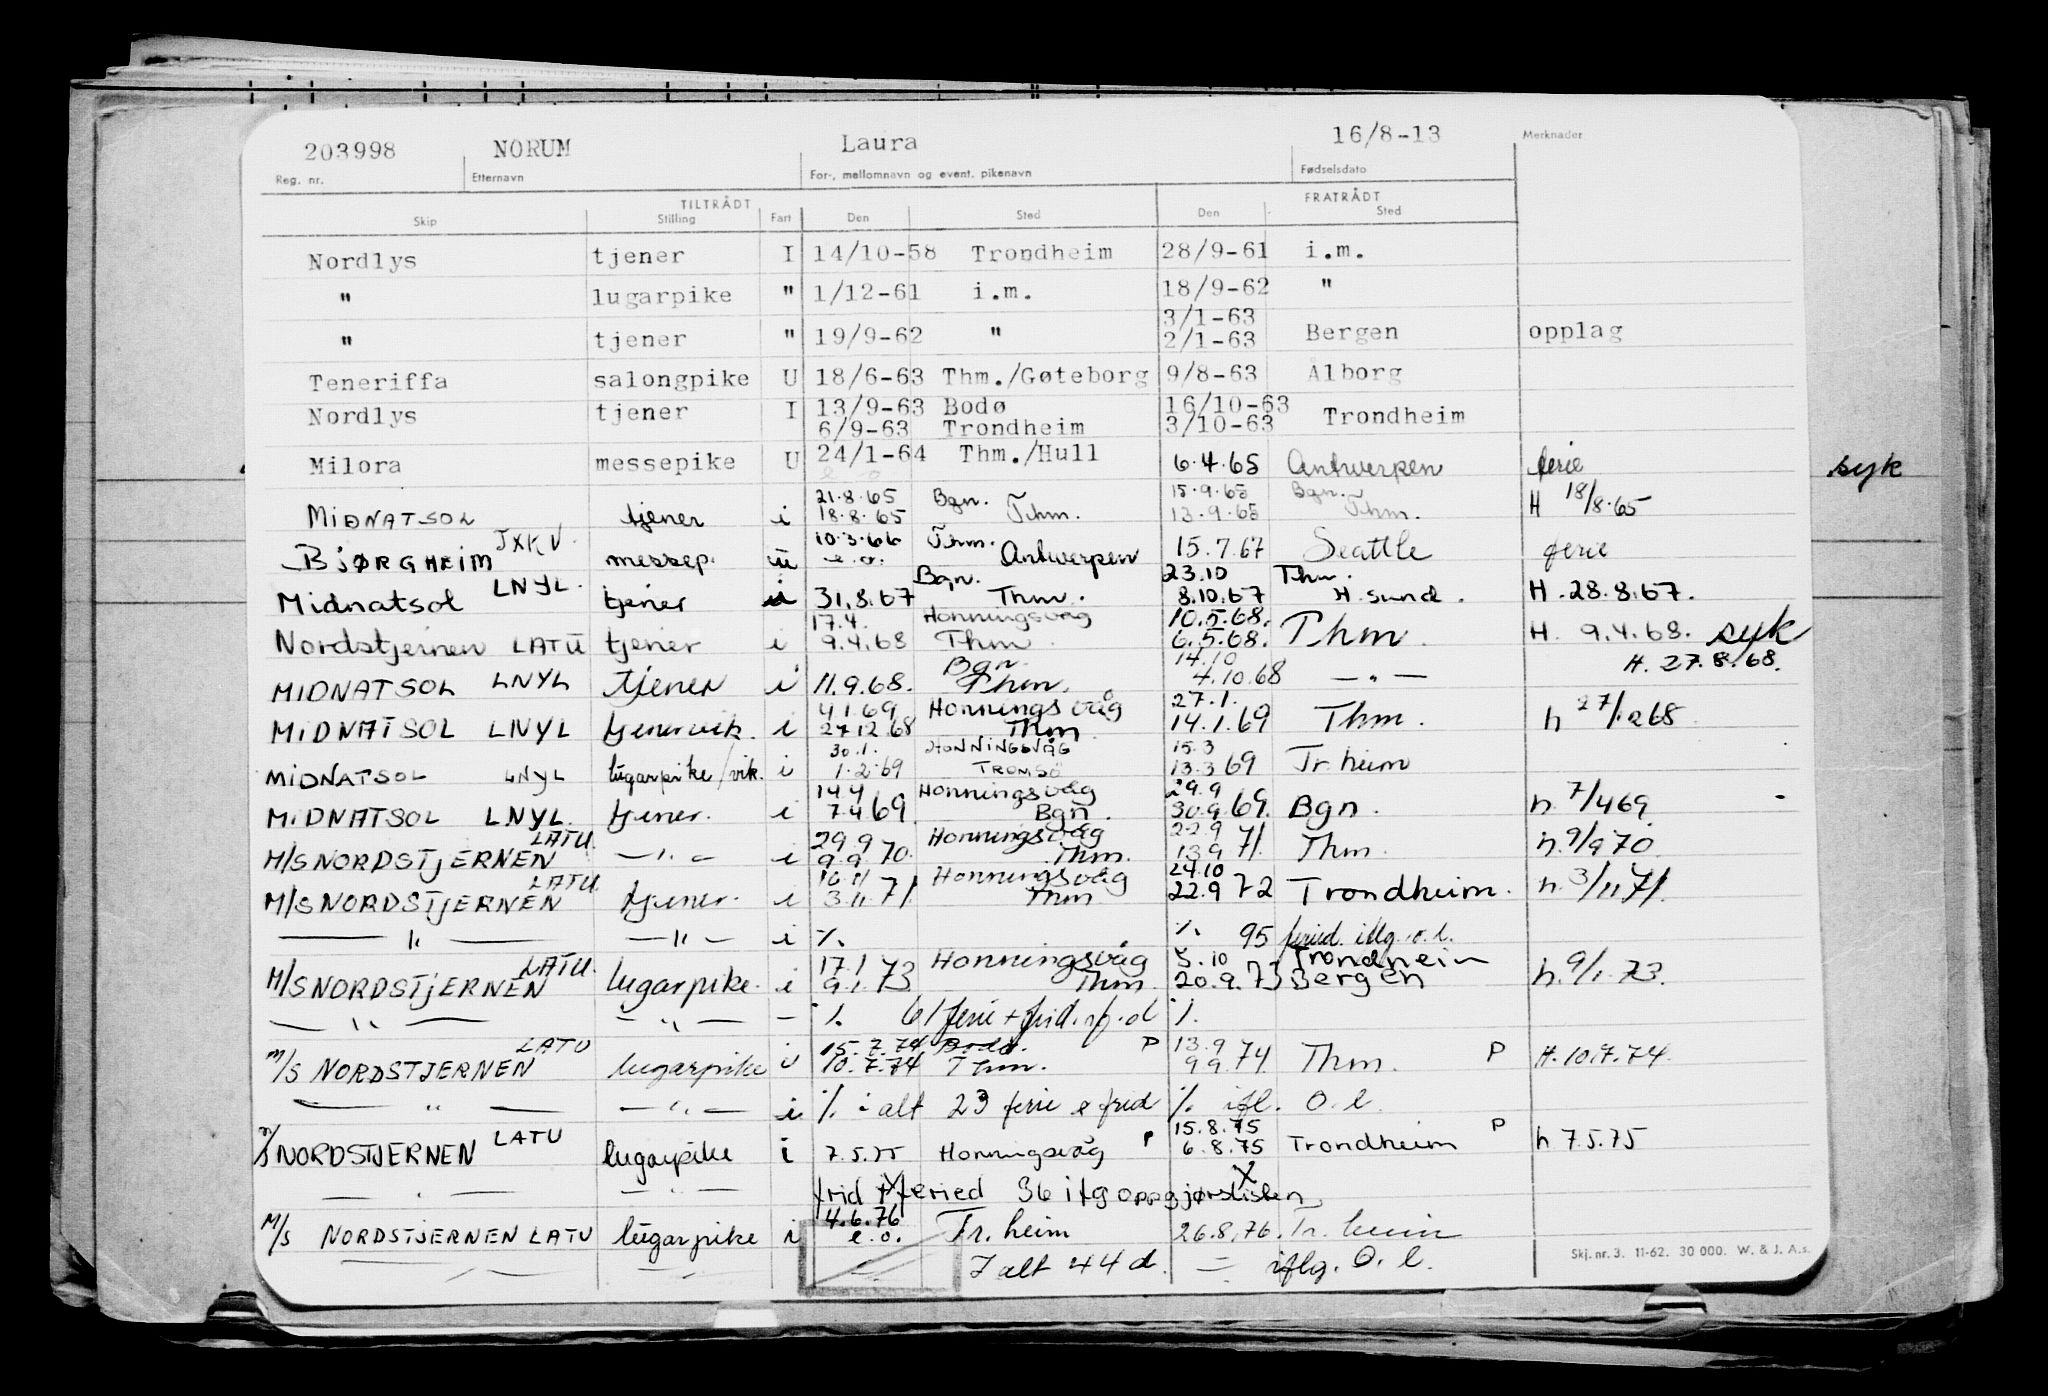 203998 NORUM Laura 16/8-13 Merknader
Reg. nr. Etternavn For-, mellomnavn og event. pikenavn Fødselsdato
TILTRÅDT FRATRÅDT
Skip Stilling Fart Den Sted Den Sted
Nordlys tjener I 14/10-58 Trondheim 28/9-61 i.m.
" lugarpike " 1/12-61 i.m. 18/9-62 "
3/1-63
" tjener " 19/9-62 " 2/1-63 Bergen opplag
Teneriffa salongpike U 18/6-63 Thm./Gøteborg 9/8-63 Ålborg
Nordlys tjener I 13/9-63 Bodø 16/10-63 Trondheim
6/9-63 Trondheim 3/10-63
Milora messepike U 24/1-64 Thm./Hull 6.4.65 Antwerpen ferie syk
21.8.65 Bgn. 15.9.65 Bgn.
MIDNATSOL tjener i 18.8.65 Thm. 13.9.65 Thm. H 18/8.65
10.3.66 Thm.
BJØRGHEIM JXKV messep. u e.o. Antwerpen 15.7.67 Seattle ferie
Bgn. 23.10 Thm.
Midnatsol LNYL. tjener i 31.8.67 Thm. 8.10.67 H.sund. H.28.8.67.
17.4. Honningsvåg 10.5.68.
Nordstjernen LATU tjener i 9.4.68 Thm 6.5.68. Thm. H. 9.4.68. syk
Bgn. 14.10 H. 27.8.68.
MIDNATSOL LNYL tjener i 11.9.68. Thm. 4.10.68 — " —
4.1.69 Honningsvåg 27.1.
MIDNATSOL LNYL tjenervik. i 27.12.68 Thm 14.1.69 Thm. h 27/1268
30.1. HONNINGSVÅG 15.3
MIDNATSOL LNYL lugarpike/vik. i 1.2.69 TROMSØ 13.3 69 Tr.heim
14.4 Honningsvåg 29.9
MIDNATSOL LNYL. tjener. i 7.4 69. Bgn. 30.9 69. Bgn. h. 7/4 69.
29.9 Honningsvåg 22.9
M/S NORDSTJERNEN LATU. — " — i 9.9 70. Thm. 13.9 71. Thm. h. 9/9 70.
16.11 Honningsvåg 24.10
M/S NORDSTJERNEN LATU. tjener. i 3.11.71. Thm 22.9 72 Trondheim. h. 3/11 71.
— " — — " — i %. %. 95 feried. iflg. o.l.
17.1 Honningsvåg 5.10 Trondheim
M/S NORDSTJERNEN LATU. lugarpike. i 9.1.73 Thm. 20.9.73 Bergen h. 9/1.73.
— " — — " — – %. 61 ferie + frid. %.
15.7.74 Bodø. P 13.9
M/S NORDSTJERNEN LATU lugarpike i 10.7.74 Thm. 9.9.74. Thm. P H. 10.7.74.
— " — — " — i % i alt 23 ferie & frid %. ifl. O.l.
15.8.75
M/S NORDSTJERNEN LATU lugarpike i 7.5.75 Honningsvåg P 6.8.75 Trondheim P h. 7.5.75
— " — — " — frid + feried 36 iflg oppgjørslisten
4.6.76
M/S NORDSTJERNEN LATU lugarpike i e.o. Tr.heim 26.8.76. Tr.heim
— " — — " — I alt 44 d. — " — iflg. O.l.
Skj. nr. 3. 11-62. 30 000. W. & J. A.s.